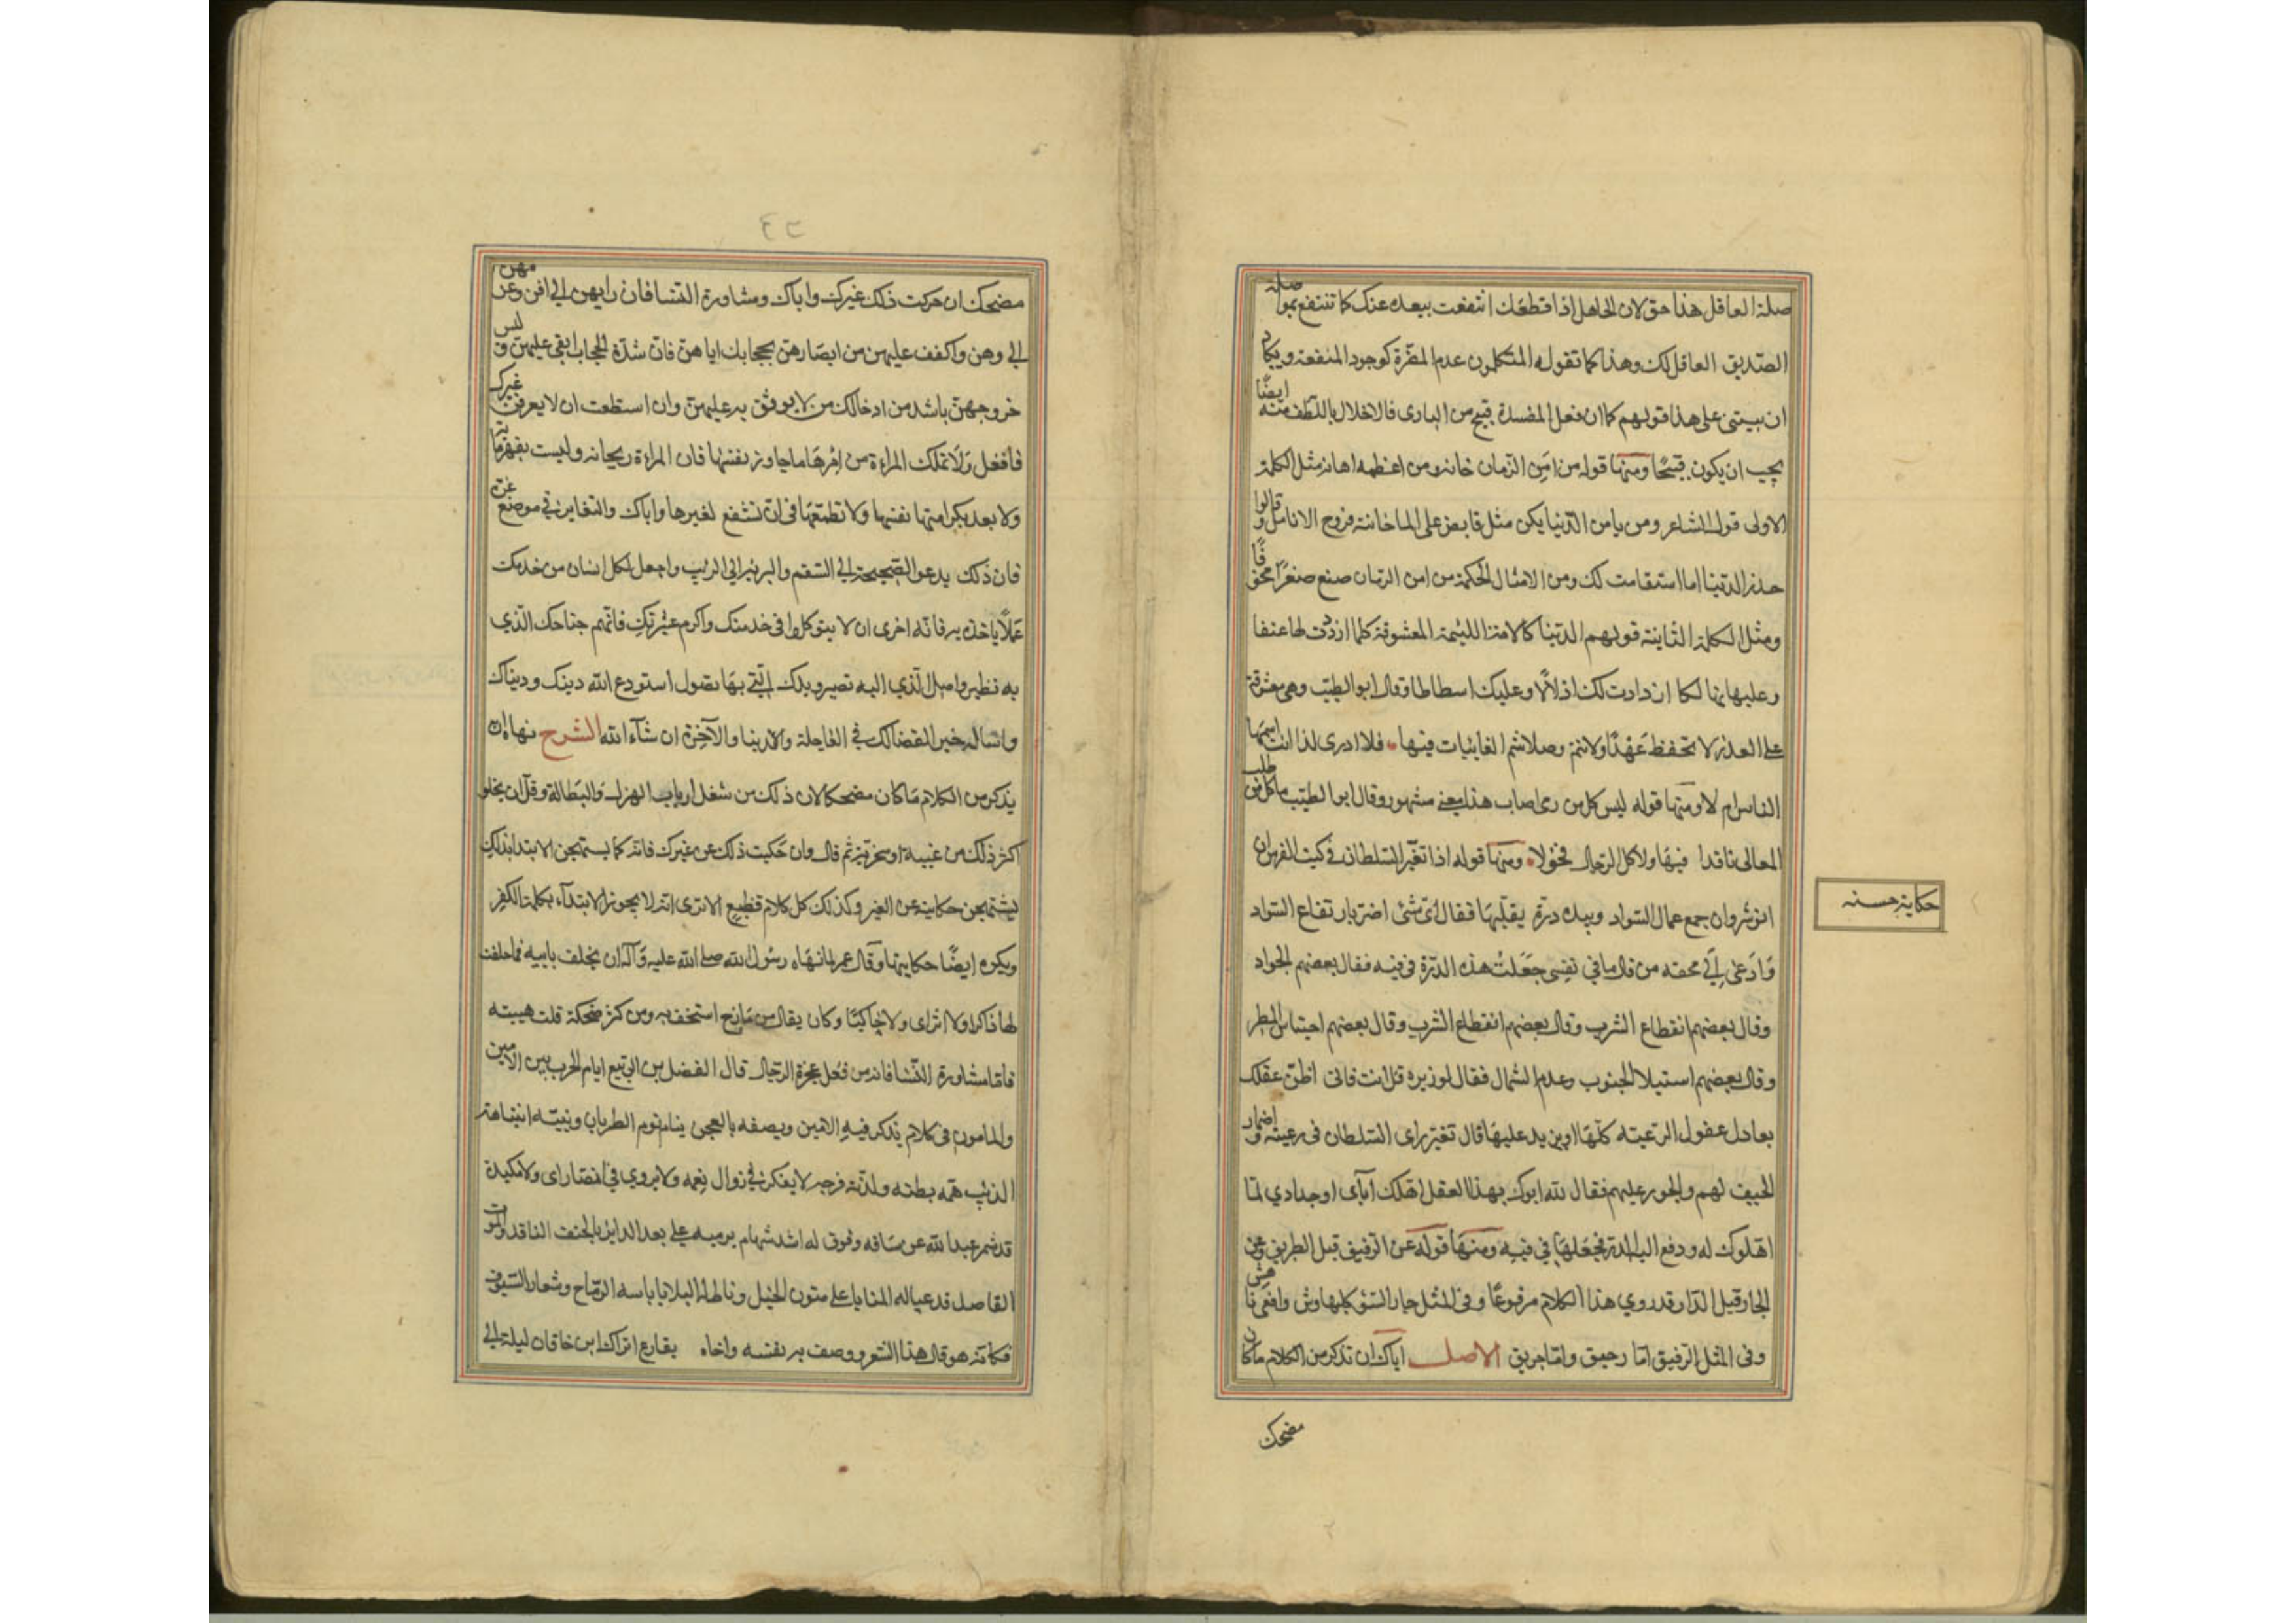 صلة العاقل هذا حق لان الجاهل اذا قطعك انتفعت ببعده عنك كما تنتفع بمواصلة
الصديق العاقل لك وهذا كما تقوله المتكلمون عدم المضرة كوجود المنفعة ويكاد
ان يبتنى على هذا قولهم كما ان فعل المفسدة قبيح من البارى فالاخلال باللطف منه ايضًا
يجب ان يكون قبيحًا ومنها قوله من امن الزمان خانه ومن اعظمه اهانه مثل الكلمة
الاولى قول الشاعر ومن يامن الدنيا يكن مثل قابض على الما خانته فروج الانامل وقالوا
حذر الدنيا اما استقامت لك ومن الامثال الحكمة من امن الزمان صنع صغرًا مخوفًا
ومثل الكلمة الثانية قولهم الدنيا كالامة اللئيمة المعشوقة كلما ازدت لها عشقا
وعليها تهالكا ازدادت لك اذلالًا وعليك اسطاطا وقال ابو الطيب وهي معشوقة
على العذر لا تحفظ عهدًا ولا تتم وصلا شم الغانيات فيها فلا ادرى لذا انث اسمها
الناس ام لا ومنها قوله ليس كل من رمى اصاب هذا معنى مشهور وقال ابو الطيب ما كل من طلب
المعالى نافدا فيها ولا كل الرجال فحولا ومنها قوله اذا تغير السلطان في كتب الفرس ان
انوشروان جمع عمال السواد وبيده درة يقلبها فقال اى شئ اضر بارتفاع السواد
وادعى الى محقه من قال ما في نفسى جعلت هذه الدرة في فيه فقال بعضهم الجراد
وقال بعضهم انقطاع الشرب وقال بعضهم انقطاع الشرب وقال بعضهم احتباس المطر
وقال بعضهم استيلا الجنوب وعدم الشمال فقال لوزيره قل انت فانى اظن عقلك
يعادل عقول الرعية كلها او يزيد عليها قال تغير راى السلطان في رعيته واضمار
الحيف لهم والجور عليهم فقال لله ابوك بهذا العقل اهلك آبآى اوجدادي لما
اهلوك له ودفع اليه الدرة فجعلها في فيه ومنها قوله عن الرفيق قبل الطريق وعن
الجار قبل الدار قد روي هذا الكلام مرفوعًا وفى المثل جار السئ كلب هاوش وافعى ناهش
وفى المثل الرفيق اما رحيق واما حريق الاصل اياك ان تذكر من الكلام ما كان
مضحك
حكاية حسنه
٤٢
مضحكا ان حكيت ذلك عن غيرك واياك ومشاورة النسا فان رايهن الى افن وعزمهن
الى وهن واكفف عليهن من ابصارهن بحجابك اياهن فان شدة الحجاب ابقى عليهن وليس
خروجهن باشد من ادخالك من لا يوثق به عليهن وان استطعت ان لا يعرفن غيرك
فافعل ولا تملك المراءة من امرها ما جاوز نفسها فان المراءة ريحانة وليست بقهرمانة
ولا بعد بكرامتها نفسها ولا تطمعها فى ان تشفع لغيرها واياك والتغاير في موضع غيرة
فان ذلك يدعو الصحيحة الى السقم والبريئة الى الريب واجعل لكل انسان من خدمك
عملًا ياخذه به فانه احرى ان لا يتوكلوا فى خدمتك واكرم عشيرتك فانهم جناحك الذي
به تطير واصلك الذي اليه تصير ويدك التي بها تصول استودع الله دينك ودنياك
واساله خير القضا لك في العاجلة والدنيا والآخرة ان شآء الله الشرح نهاه ان
يذكر من الكلام ما كان مضحكا لان ذلك من شغل ارباب الهزل والبطالة وقل ان يخلو
اكثر ذلك من غيبة او سخرية ثم قال وان حكيت ذلك عن غيرك فانه كما يستهجن الابتدا بذلك
يستهجن حكايته عن الغير وكذلك كل كلام فظيع الا ترى انه لا يجوز الابتدآء بكلمة الكفر
ويكره ايضًا حكايتها وقال عمر لما نهاه رسول الله صلى الله عليه وآله ان يحلف بابيه فما حلفت
بها ذاكرا ولا اثرا ولا حاكيًا وكان يقال من مازح استخف به ومن كثر ضحكه قلت هيبته
فاما مشاورة النسا فانه من فعل عجزة الرجال قال الفضل بن الربيع ايام الحرب بين الامين
والمامون فى كلام يذكر فيه الامين ويصفه بالعجز ينام نوم الظربان وينتبه انتباهة
الذئب همه بطنه ولذته فرجه لا يفكر في زوال نعمه ولا يروي في امضا راى ولا مكيدة
قد شمر عبد الله عن ساقه وفوق له اشد سهام يرميه على بعد الدار بالحتف النافذ والموت
القاصد قد عبا له المنايا على متون الخيل وناط له البلايا باسنة الرماح وشفار السيوف
فكانه هو قال هذا الشعر ووصف به نفسه واخاه يقارع اتراك ابن خاقان ليلة الى